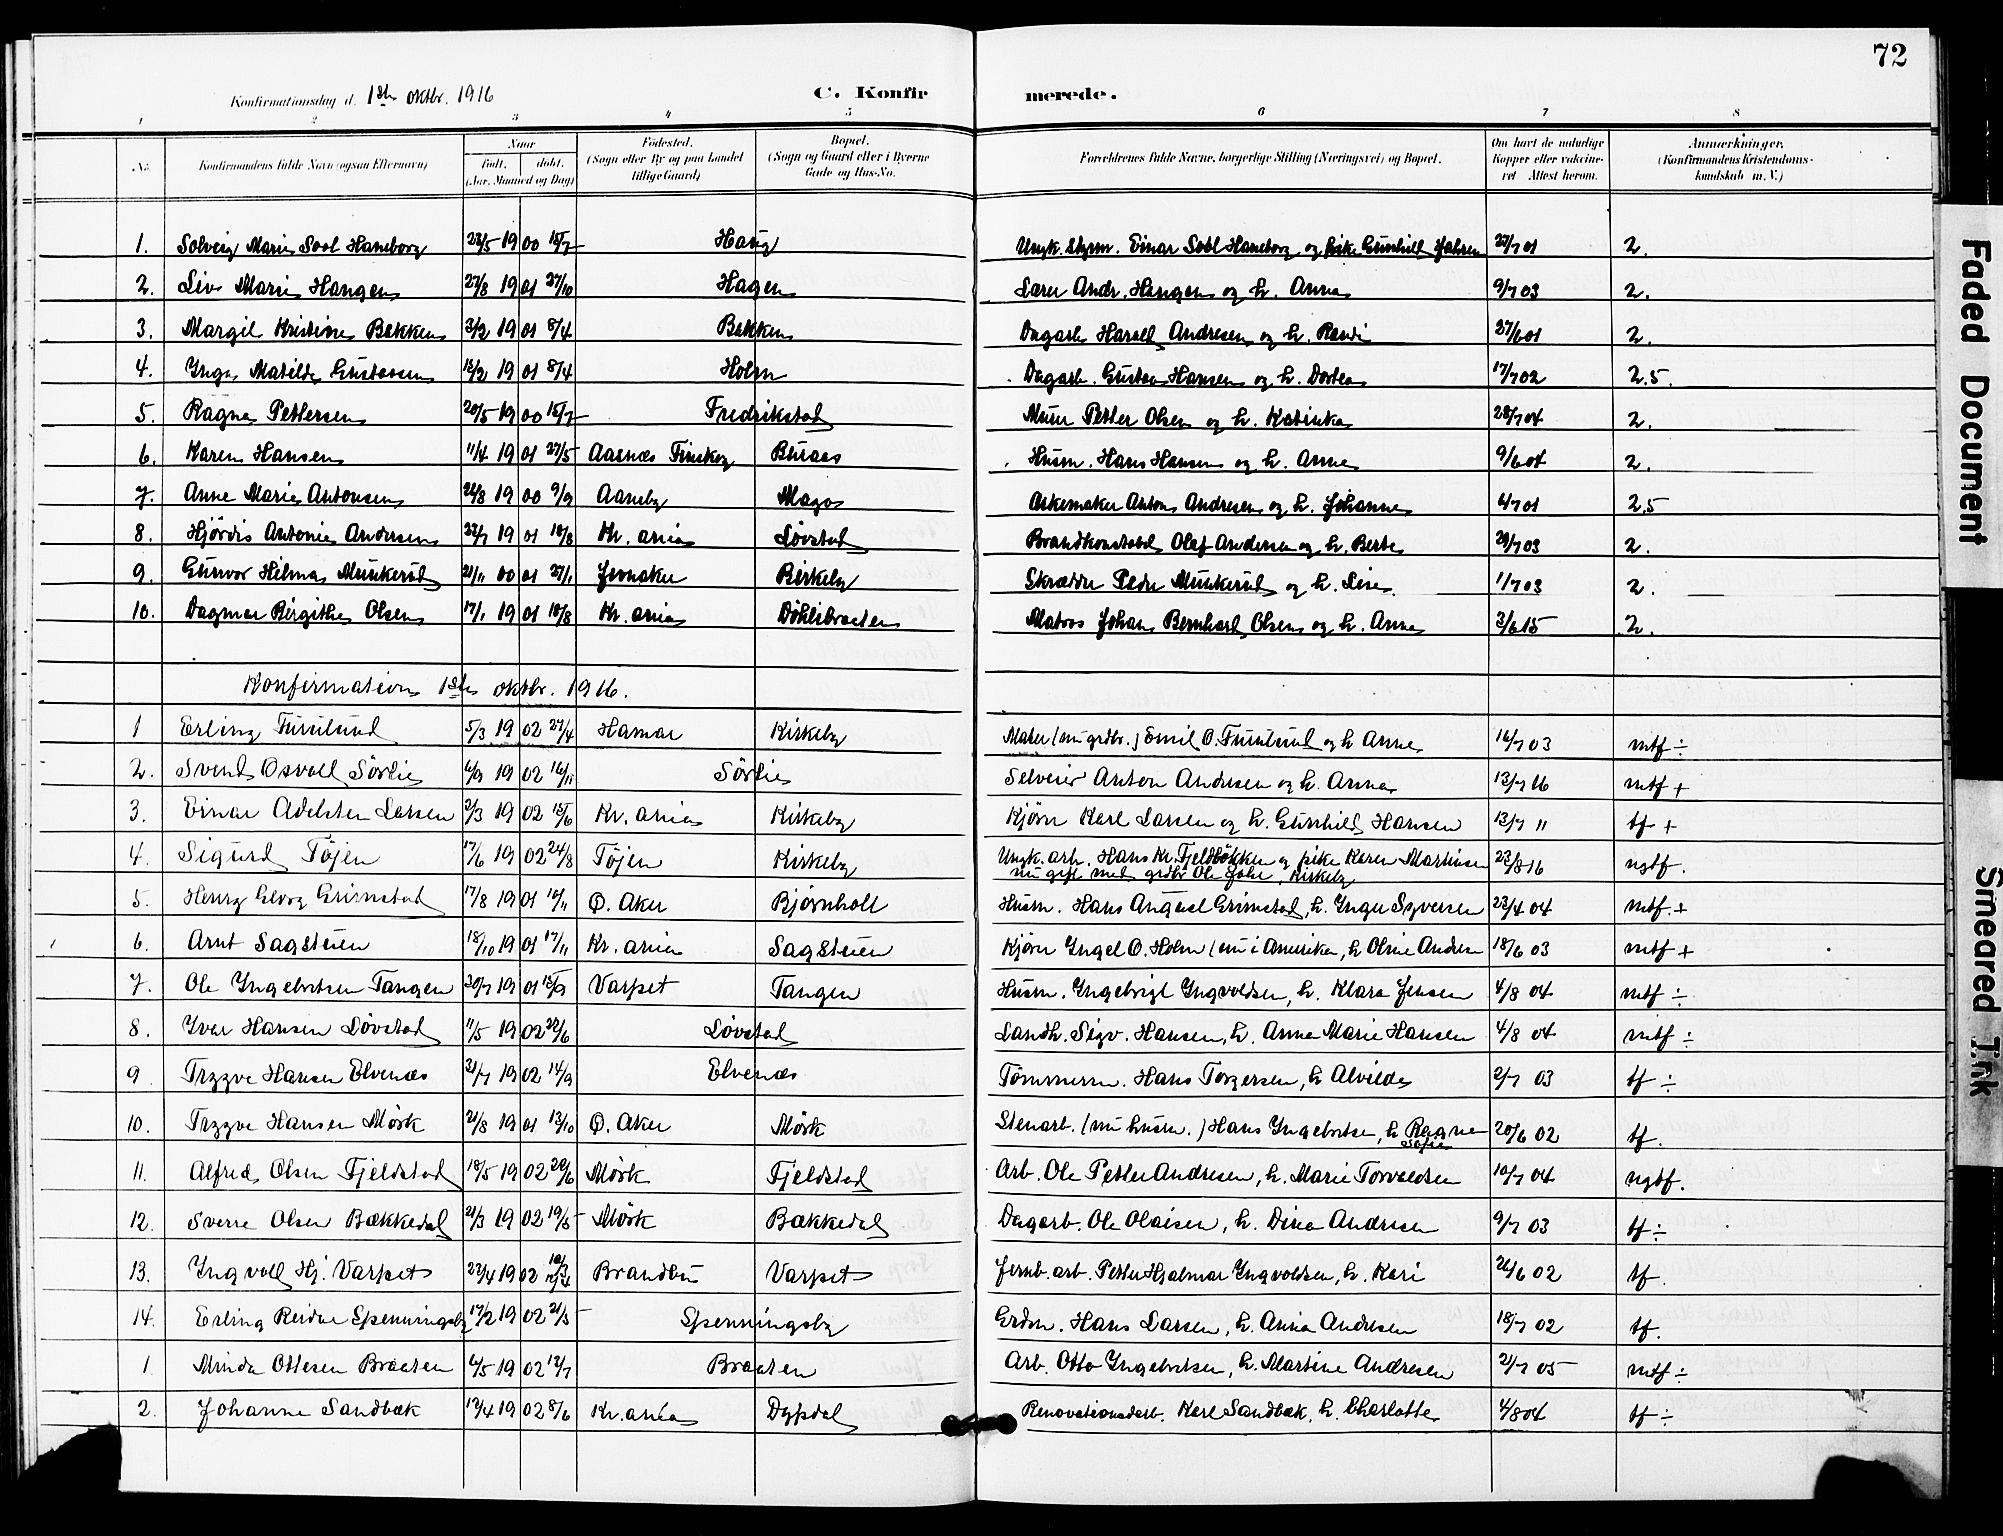 72
Konfirmationsdag d. 1ste oktbr. 1916 C. Konfirmerede.
1 2 3 4 5 6 7 8
No. Konfirmandens fulde Navn (ogsaa Efternavn) Naar Født. døbt. (Aar, Maaned og Dag) Fødested. (Sogn eller By og paa Landet tillige Gaard) Bopæl. (Sogn og Gaard eller i Byerne Gade og Hus-No. Forældrenes fulde Navne, borgerlige Stilling (Næringsvei) og Bopæl. Om havt de naturlige Kopper eller vakcineret Attest herom. Anmærkninger. (Konfirmandens Kristendomskundskab m. V.)
1. Solveig Marie Sool Haneborg 23/5 19 00 15/7 Haug Ungk. Styrm. Einar Sool Haneborg og Pike Gunhild Jahren 27/7 01 2.
2. Liv Marie Haugen 27/8 19 01 27/10 Hagen Lærer Andr. Haugen og h. Anna 9/7 03 2.
3. Margit Kristine Bakken 3/2 19 01 8/4 Bakken Dagarb. Harald Andresen og h. Randi 27/6 01 2.
4. Inga Matilde Gustavsen 15/2 19 01 8/4 Holm Dagarb. Gustav Hansen og h. Dortea 17/7 02 2.5.
5. Ragna Pettersen 20/5 19 00 15/7 Fredrikstad Murer Petter Olsen og h. Katinka 28/7 04 2.
6. Karen Hansen 11/4 19 01 27/5 Aasnes Finskog Buaas Husm. Hans Hansen og h. Anne 9/6 04 2.
7. Anne Marie Antonsen 26/8 19 00 9/9 Aaneby Mago Askemaker Anton Andresen og h. Johanne 4/7 01 2.5
8. Hjørdis Antonie Andersen 22/7 19 01 18/8 Kr.ania Løvstad Brandkonstabel Olaf Andersen og h. Berte 29/7 03 2.
9. Gunvor Helma Munkerud 21/11 00 01 27/1 Jevnaker Birkeby Skrædder Peder Munkerud og h. Lise 1/7 03 2.
10. Dagmar Birgithe Olsen 17/1 19 01 18/8 Kr.ania Døhlibraaten Matros Johan Bernhard Olsen og h. Anna 3/6 15 2.
Konfirmation 1ste oktbr. 1916.
1 Erling Furulund 5/3 19 02 27/4 Hamar Kirkeby Maler (nu grdbr.) Emil O. Furulund og h. Anne 16/7 03 mtf ÷
2. Svend Osvall Sørlie 6/9 19 02 16/11 Sørlie Selveier Anton Andresen og h. Anna 13/7 16 mtf +
3. Einar Adelsten Larsen 2/3 19 02 15/6 Kr.ania Kirkeby Kjører Karl Larsen og h. Gunhild Hansen 13/7 11 tf +
4. Sigurd Tøjen 17/6 19 02 24/8 Tøjen Kirkeby Ungk. arb. Hans Kr. Fjeldbakken og pike Karen Martinsen 23/8 16 ngtf.
nu gift med grdbr Ole Johs. Kirkeby
5. Henry Georg Grimstad 17/8 19 01 10/11 Ø. Aker Bjørnholt Husm. Hans August Grimstad, h. Inger Syversen 23/4 04 mtf. +
6. Arnt Sagstuen 18/10 19 01 17/11 Kr.ania Sagstuen Kjører Ingel O. Holm (nu i Amerika, h Oline Andrea 18/6 03 mtf +
7. Ole Ingebretsen Tangen 20/7 19 01 15/9 Varpet Tangen Husm. Ingebrigt Ingvoldsen, h. Klara Jensen 4/8 04 mtf ÷
8. Ivar Hansen Løvstad 11/5 19 02 22/6 Løvstad Landh. Sigv. Hansen, h. Anne Marie Hansen 4/8 04 mtf ÷
9 Trygve Hansen Elvenæs 21/7 19 02 14/9 Elvenæs Tømmerm. Hans Torgersen, h Alvilde 2/7 03 tf ÷
10. Trygve Hansen Mørk 21/8 19 01 13/10 Ø. Aker Mørk Stenarb. (nu husm.) Hans Ingebretsen, h Ragna Sofie 20/6 02 tf.
11. Alfred Olsen Fjeldstad 18/5 19 02 20/6 Mørk Fjeldstad Arb. Ole Petter Andresen, h. Marie Torvaldsen 10/7 04 ngtf.
12. Sverre Olsen Bækkedal 21/3 19 02 19/5 Mørk Bækkedal Dagarb. Ole Olaisen, h. Dina Andresen 9/7 03 tf ÷
13. Ingvoll Hj. Varpet 22/4 19 02 Brandbu Varpet Jernb. arb. Petter Hjalmar Ingvoldsen, h. Kari 26/6 02 tf.
14. Erling Reidar Spenningsby 17/2 19 02 21/5 Spenningsby Grdm. Hans Larsen, h. Anna Andresen 18/7 02 tf.
1 Minda Ottesen Braaten 6/5 19 02 12/7 Braaten Arb. Otto Ingebretsen, h. Martine Andresen 21/7 05 mtf ÷
2. Johanne Sandbæk 12/4 19 02 8/6 Kr.ania Dypdal Renovationsarb. Karl Sandbæk, h. Charlotte 4/8 04 tf ÷
Faded Document
Smeared Ink